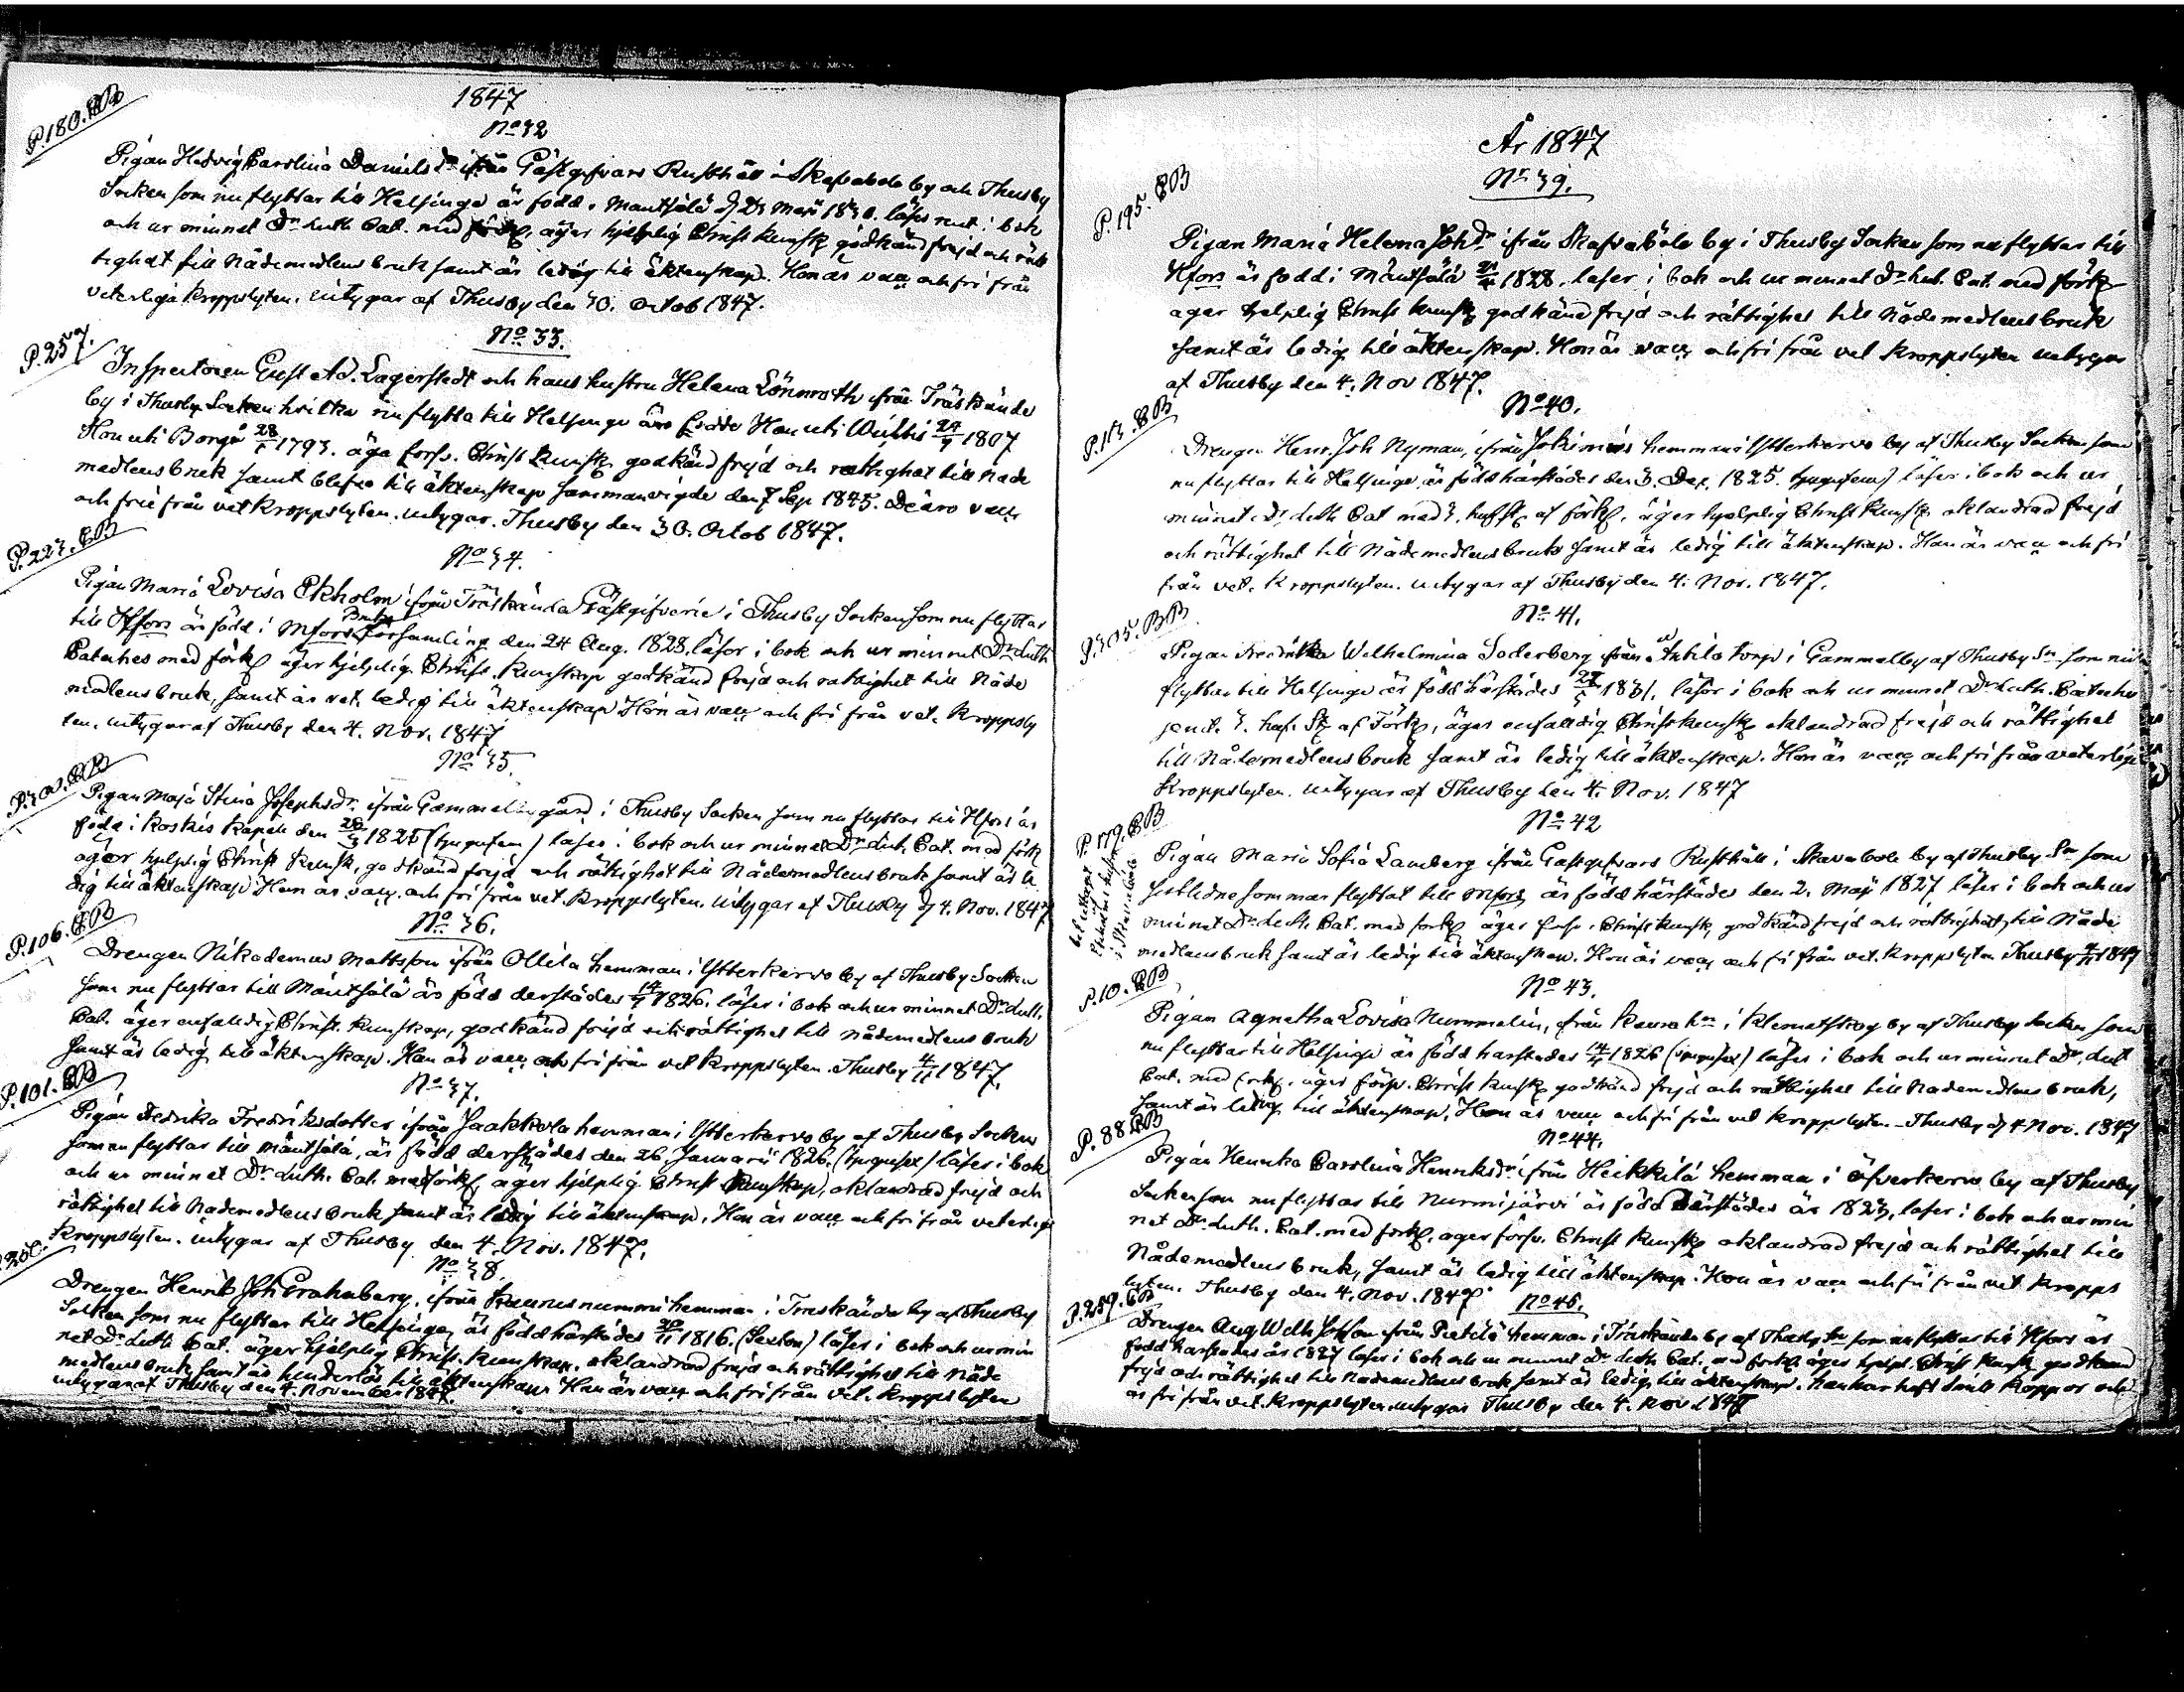 1847
No 32
P.180.BB
Pigan Hedvig Carolina Daniels dr ifrån Gästgifvars Rusthåll i Skafvabole by och Thusby
Socken som nu flyttar till Helsinge är född i Mäntsälä d. 23 Maji 1830. läser rent i bok
och ur minnet Dr Luth Cat. med förkl, äger hjelplig Christ kunsk godkänd frejd och rätt
tighet till Nådemedlens bruk samt är ledig till äktenskap. Hon är vacc och fri från
veterliga kroppslyten. intygar af Thusby den 30. Octob 1847.
No 33.
P.257.
Inspectoren Gust Ad. Lagerstedt och hans hustru Helena Lönnroth ifrån Träskända
by i Thusby Socken hvilka nu flytta till Helsinge äro födde Han uti 1807
Hon uti Borgå 1793. äga försv. Christ kunsk godkänd frejd och rättighet till Nåde
medlens bruk samt blefvo till äktenskap sammanvigde den 7 Sep 1845. De äro vacc
och frie från vet kroppslyten. intygar. Thusby den 30. Octob 1847.
No 34.
P.223.BB
Pigan Maria Lovisa Ekholm ifrån Träskända Gästgifverie i Thusby Socken som nu flyttar
till Hfors är född i Mfors Församling den 24 Aug. 1828. läser i bok och ur minnet Dr Luth
Cateches med förkl äger hjelplig Christ. kunskap godkänd frejd och rättighet till Nåde
medlens bruk, samt är vet. ledig till äktenskap Hon är vacc och fri från vet. kroppsly
ten. intygar af Thusby den 4. Nov. 1847
No 35.
Pigan Maja Stina Josephsdr. ifrån Gammelby gård i Thusby Socken som nu flyttar till Hfors är
född i Koskis Kapell den 28/3 1825 (tjugufem) läser i bok och ur minnet Dr Luth. Cat. med förkl
äger hjelplig Christ kunsk, godkänd frejd och rättighet till Nådemedlens bruk samt är le
dig till äktenskap Hon är vacc. och fri från vet. kroppslyten. intygar af Thusby d 4. Nov. 1847
No 36.
P.106.BB
Drengen Nikodemus Mattsson ifrån Ollila hemman i Ytterkervo by af Thusby Socken
som nu flyttar till Mäntsälä är född derstädes 1826. läser i bok och ur minnet Dr Luth.
Cat. äger enfaldig Christ. kunskap, godkänd frejd och rättighet till nådemedlens bruk
samt är ledig till äktenskap. Han är vacc och fri från vet kroppslyten. Thusby 4/11 1847.
No 37.
P.101.BB
Pigan Fredrika Fredriksdotter ifrån Jaakkola hemman i Ytterkervo by af Thusby Socken
som nu flyttar till Mäntsälä, är född derstädes den 26 Januarii 1826. (tjugusex) läser i bok
och ur minnet Dr Luth. Cat. med förkl, äger hjelplig Christ kunskap, oklandrad frejd och
rättighet till Nådemedlens bruk samt är ledig till äktenskap. Hon är vacc och fri från veterlige
kroppslyten. intygar af Thusby den 4. Nov. 1847.
No 38.
Drengen Henrik Joh Grahnberg, ifrån hemman i Träskända by af Thusby
Socken som nu flyttar till Helsinge, är född härstädes 1816. (Sexton) läser i bok och ur min
net Dr Luth Cat. äger hjelplig Christ. kunskap. oklandrad frejd och rättighet till Nåde
medlens bruk samt är hinderlös till äktenskap Han är vacc och fri från vet. kroppslyten
intygar af Thusby den 4. November 1847.
År 1847
No 39.
P.195.BB
Pigan Maria Helena Johdr ifrån Skafvaböle by i Thusby Socken som nu flyttar till
Hfors är född i Mäntsälä 1828, läser i bok och ur minnet Dr Lut. Cat. med förkl
äger hjelplig Christ kunsk godkänd frejd och rättighet till Nådemedlens bruk
samt är ledig till äktenskap. Hon är vacc och fri från vet kroppslyten intygar
af Thusby den 4. Nov 1847.
No 40.
P.113.BB
Drengen Henr. Joh Nyman, ifrån hemman i Ytterkervo by af Thusby Socken som
nu flyttar till Helsinge är född härstädes den 3. Dec. 1825. tjugufem) läser i bok och ur
minnet Dr Luth Cat med af förkl, äger hjelplig Christ kunsk. oklandrad frejd
och rättighet till Nådemedlens bruk samt är ledig till äktenskap. Han är vacc och fri
från vet. kroppslyten. intygar af Thusby den 4. Nov. 1847.
No 41.
P.305.BB
Pigan Fredrika Wilhelmina Söderberg ifrån Anttila torp i Gammelby af Thusby Sn som nu
flyttar till Helsinge är född härstädes 1831. läser i bok och ur minnet Dr Luth. Cateches
jemt. af Förkl, äger enfaldig Christ kunsk oklandrad frejd och rättighet
till Nådemedlens bruk samt är ledig till äktenskap. Hon är vacc och fri från veterlige
kroppslyten. intygar af Thusby den 4. Nov. 1847
No 42
P.179.BB
Pigan Maria Sofia Lamberg ifrån Gästgifvars Rusthåll i Skavabole by af Thusby Sn som
sistledne sommar flyttat till Mfors är född härstädes den 2. Maji 1827, läser i bok och ur
minnet Dr Luth. Cat. med förkl äger försv. Christ kunsk, godkänd frejd och rättighet till Nåde
medlens bruk samt är ledig till äktenskap. Hon är vacc och fri från vet. kroppslyten Thusby 4/11 1847
No 43.
P.10.BB
Pigan Agnetha Lovisa Nummelin, ifrån hn i Klemetskog by af Thusby Socken som
nu flyttar till Helsinge är född härstädes 1826 (tjugusex) läser i bok och ur minnet Dr. Lut
Cat. med förkl. äger försv. Christ kunsk godkänd frejd och rättighet till Nådemedlens bruk,
samt är ledig till äktenskap, Hon är vacc och fri från vet kroppslyten. Thusby d 4 Nov. 1847
No 44.
P.88.BB
Pigan Henrika Carolina Henriksdr. ifrån Heikkilä hemman i Öfverkervo by af Thusby
Socken som nu flyttar till Nurmijärvi är född härstädes år 1823, läser i bok och ur min
net Dr Luth. Cat. med förkl, äger försv. Christ kunsk oklandrad frejd och rättighet till
Nådemedlens bruk, samt är ledig till äktenskap. Hon är vacc och fri från vet kropps
lyten. Thusby den 4. Nov. 1847.
No 45.
P.259.BB
Drengen Aug Wilh Johsson ifrån Pietilä hemman i Träskända by af Thusby Sn som nu flyttar till Hfors är
född härstädes år 1827 läser i bok och ur minnet Dr Luth Cat. med förkl. äger hjelpl. Christ kunsk godkänd
frejd och rättighet till Nådemedlens bruk samt är ledig till äktenskap. han har haft koppor och
är fri från vet. kroppslyten. intygar Thusby den 4. Nov. 1847